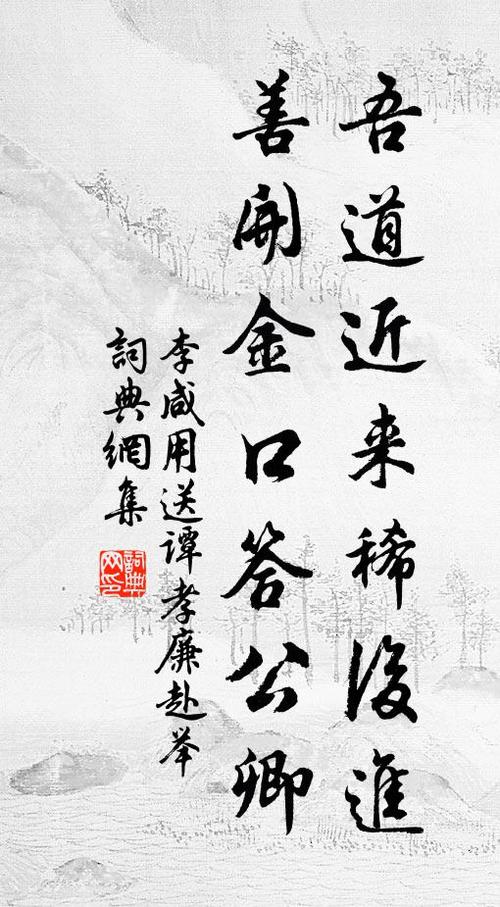 吾道近来稀後進
善開金口答公卿
李咸用送谭孝廉赴举
詞典網集
詞典網印